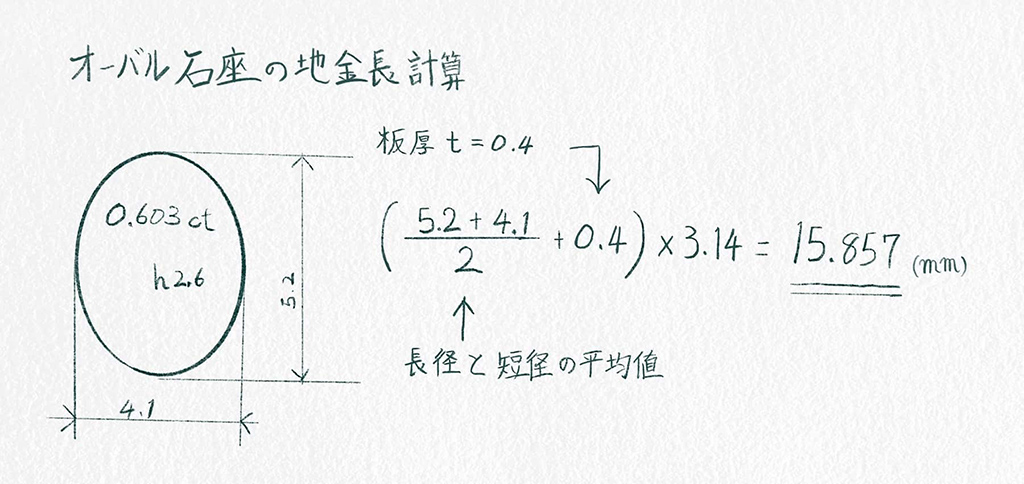 オーバル石座の地金長計算
板厚 t=0.4
0.603 ct
h2.6
5.2
4.1
(5.2+4.1/2+0.4)×3.14=15.857(mm)
長径と短径の平均値